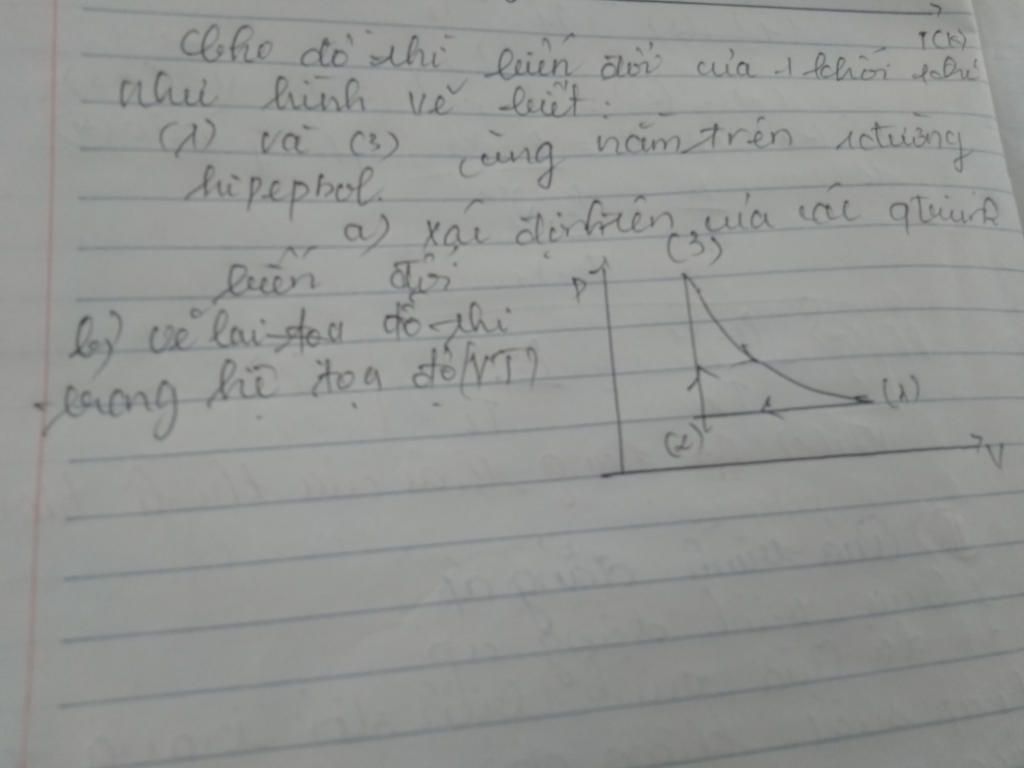 T(K)
Cho đồ thị biến đổi của 1 khối khí
như hình vẽ biết:
(1) và (3) cùng nằm trên 1 đường
hipepbol.
a) xác định tên của các qtrình
biến đổi
b) vẽ lại đồ thị
trong hệ tọa độ (VT)
(3)
P
(1)
(2)
V